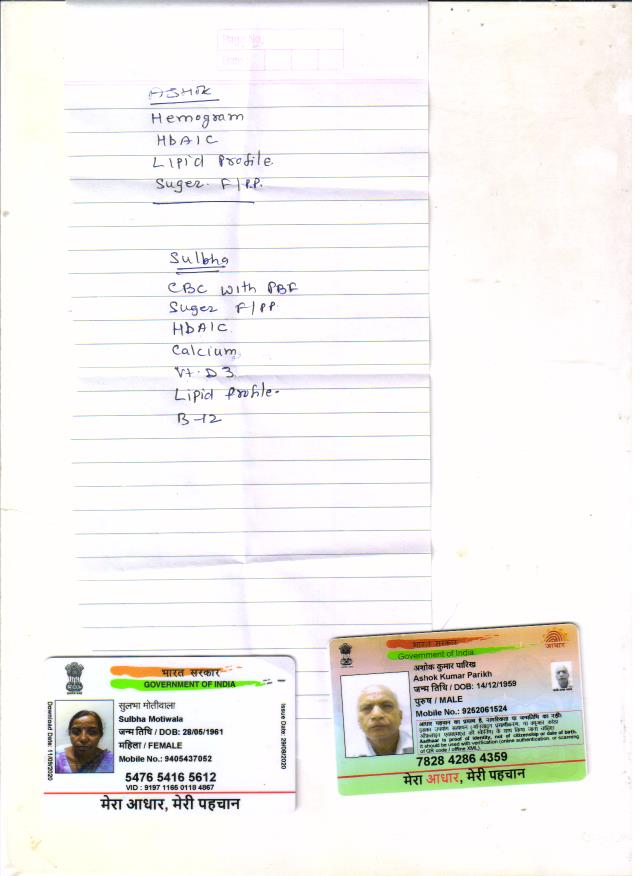 Page No.
Date
ASHOK
Hemogram
HbA1C
Lipid Profile.
Suger. F/P.P.
Sulbha
CBC with PBF
Suger F/PP.
HbA1C
Calcium,
Vt. D3
Lipid Profile.
B-12
भारत सरकार
GOVERNMENT OF INDIA
सुलभा मोतीवाला
Sulbha Motiwala
जन्म तिथि / DOB: 28/05/1961
महिला / FEMALE
Mobile No.: 9405437052
5476 5416 5612
VID : 9197 1165 0118 4867
मेरा आधार, मेरी पहचान
भारत सरकार
Government of India
आधार
अशोक कुमार पारिख
Ashok Kumar Parikh
जन्म तिथि / DOB: 14/12/1959
पुरुष / MALE
Mobile No.: 9252061524
Aadhaar is proof of identity, not of citizenship or date of birth.
It should be used with verification (online authentication, or scanning
of QR code / offline XML).
7828 4286 4359
मेरा आधार, मेरी पहचान